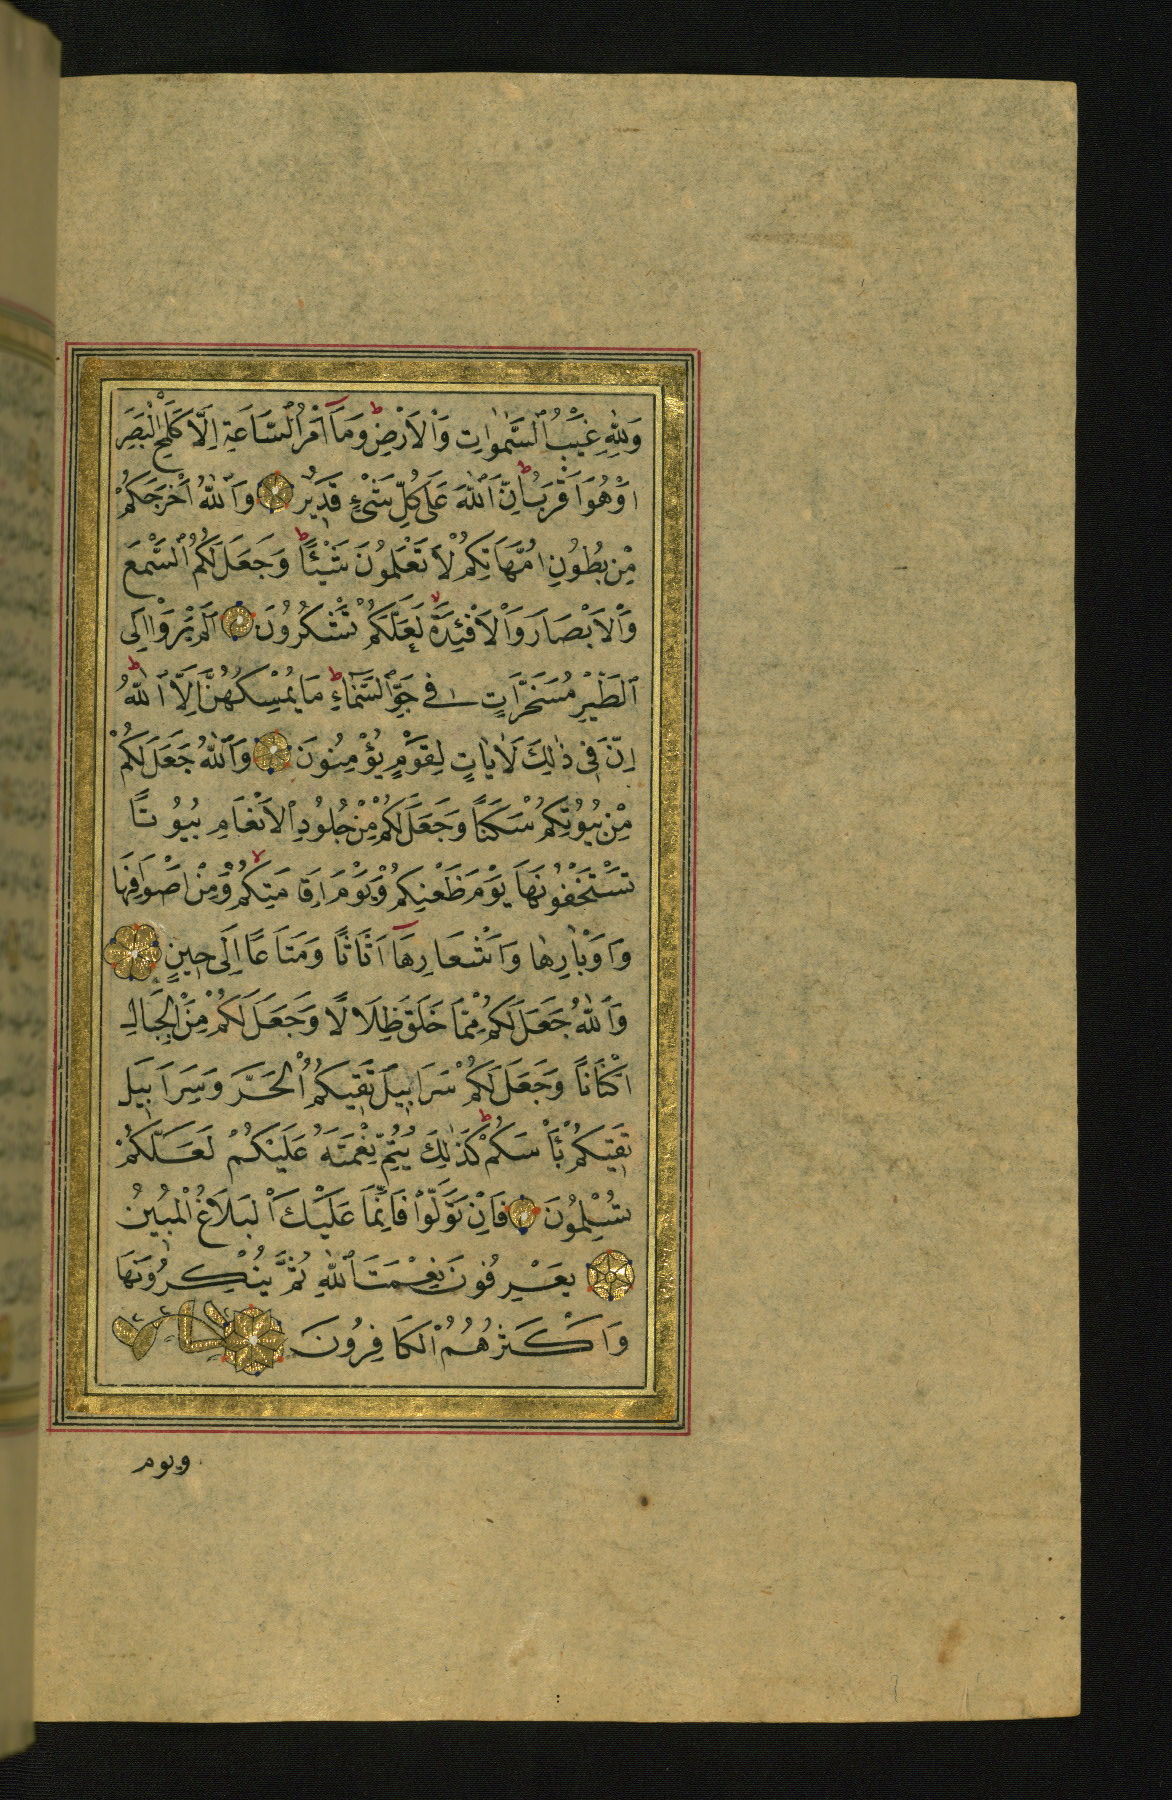 وَلِلّٰهِ غَيْبُ ٱلسَّمٰوَاتِ وَٱلْاَرْضِ وَمَآ اَمْرُ ٱلسَّاعَةِ اِلَّا كَلَمْحِ ٱلْبَصَرِ
اَوْ هُوَ اَقْرَبُ اِنَّ ٱللّٰهَ عَلٰى كُلِّ شَىْءٍ قَدِيرٌ وَٱللّٰهُ اَخْرَجَكُمْ
مِنْ بُطُونِ اُمَّهَاتِكُمْ لَا تَعْلَمُونَ شَيْئًا وَجَعَلَ لَكُمُ ٱلسَّمْعَ
وَٱلْاَبْصَارَ وَٱلْاَفْئِدَةَ لَعَلَّكُمْ تَشْكُرُونَ اَلَمْ يَرَوْا اِلَى
ٱلطَّيْرِ مُسَخَّرَاتٍ فِى جَوِّ ٱلسَّمَآءِ مَا يُمْسِكُهُنَّ اِلَّا ٱللّٰهُ
اِنَّ فِى ذٰلِكَ لَاٰيَاتٍ لِقَوْمٍ يُؤْمِنُونَ وَٱللّٰهُ جَعَلَ لَكُمْ
مِنْ بُيُوتِكُمْ سَكَنًا وَجَعَلَ لَكُمْ مِنْ جُلُودِ ٱلْاَنْعَامِ بُيُوتًا
تَسْتَخِفُّونَهَا يَوْمَ ظَعْنِكُمْ وَيَوْمَ اِقَامَتِكُمْ وَمِنْ اَصْوَافِهَا
وَاَوْبَارِهَا وَاَشْعَارِهَآ اَثَاثًا وَمَتَاعًا اِلٰى حِينٍ
وَٱللّٰهُ جَعَلَ لَكُمْ مِمَّا خَلَقَ ظِلَالًا وَجَعَلَ لَكُمْ مِنَ ٱلْجِبَالِ
اَكْنَانًا وَجَعَلَ لَكُمْ سَرَابِيلَ تَقِيكُمُ ٱلْحَرَّ وَسَرَابِيلَ
تَقِيكُمْ بَأْسَكُمْ كَذٰلِكَ يُتِمُّ نِعْمَتَهُ عَلَيْكُمْ لَعَلَّكُمْ
تُسْلِمُونَ فَاِنْ تَوَلَّوْا فَاِنَّمَا عَلَيْكَ ٱلْبَلَاغُ ٱلْمُبِينُ
يَعْرِفُونَ نِعْمَتَ ٱللّٰهِ ثُمَّ يُنْكِرُونَهَا
وَاَكْثَرُهُمُ ٱلْكَافِرُونَ
ويوم